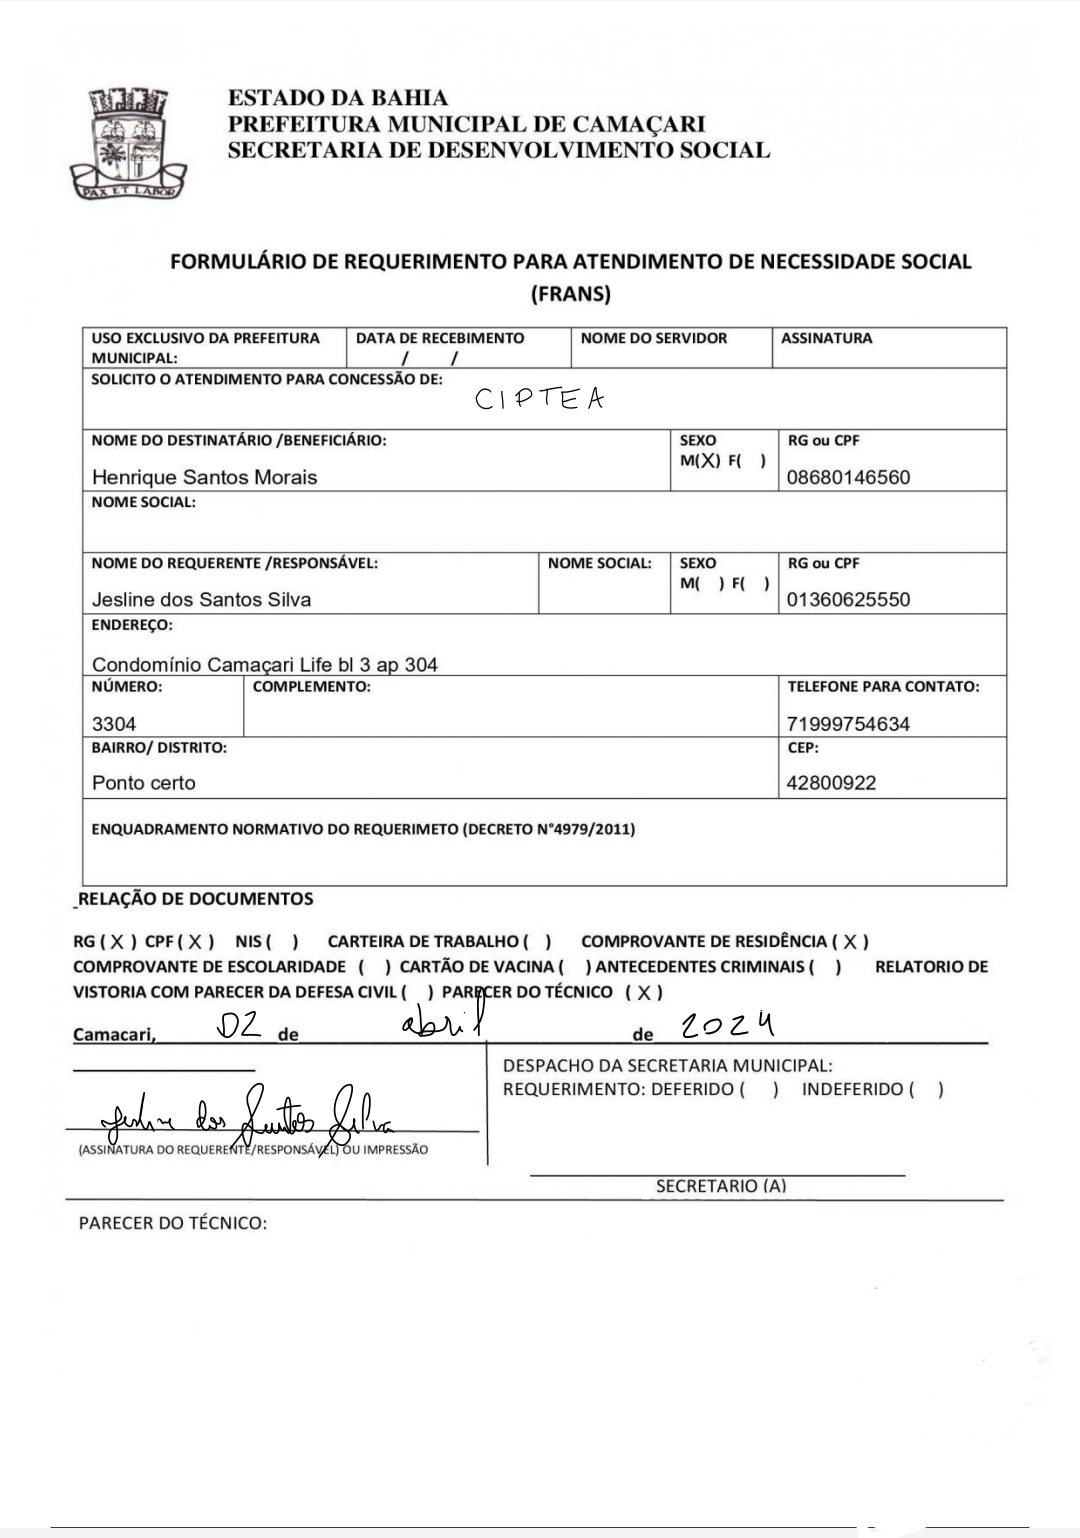 PAX ET LABOR
ESTADO DA BAHIA
PREFEITURA MUNICIPAL DE CAMAÇARI
SECRETARIA DE DESENVOLVIMENTO SOCIAL
FORMULÁRIO DE REQUERIMENTO PARA ATENDIMENTO DE NECESSIDADE SOCIAL
(FRANS)
USO EXCLUSIVO DA PREFEITURA MUNICIPAL: DATA DE RECEBIMENTO / / NOME DO SERVIDOR ASSINATURA
SOLICITO O ATENDIMENTO PARA CONCESSÃO DE:
CIPTEA
NOME DO DESTINATÁRIO /BENEFICIÁRIO: SEXO RG ou CPF
M(X) F( )
Henrique Santos Morais 08680146560
NOME SOCIAL:
NOME DO REQUERENTE /RESPONSÁVEL: NOME SOCIAL: SEXO RG ou CPF
M( ) F( )
Jesline dos Santos Silva 01360625550
ENDEREÇO:
Condomínio Camaçari Life bl 3 ap 304
NÚMERO: COMPLEMENTO: TELEFONE PARA CONTATO:
3304 71999754634
BAIRRO/ DISTRITO: CEP:
Ponto certo 42800922
ENQUADRAMENTO NORMATIVO DO REQUERIMETO (DECRETO N°4979/2011)
RELAÇÃO DE DOCUMENTOS
RG ( X ) CPF ( X ) NIS ( ) CARTEIRA DE TRABALHO ( ) COMPROVANTE DE RESIDÊNCIA ( X )
COMPROVANTE DE ESCOLARIDADE ( ) CARTÃO DE VACINA ( ) ANTECEDENTES CRIMINAIS ( ) RELATORIO DE
VISTORIA COM PARECER DA DEFESA CIVIL ( ) PARECER DO TÉCNICO ( X )
Camacari, 02 de abril de 2024
DESPACHO DA SECRETARIA MUNICIPAL:
REQUERIMENTO: DEFERIDO ( ) INDEFERIDO ( )
Jesline dos Santos Silva
(ASSINATURA DO REQUERENTE/RESPONSÁVEL) OU IMPRESSÃO
SECRETARIO (A)
PARECER DO TÉCNICO: